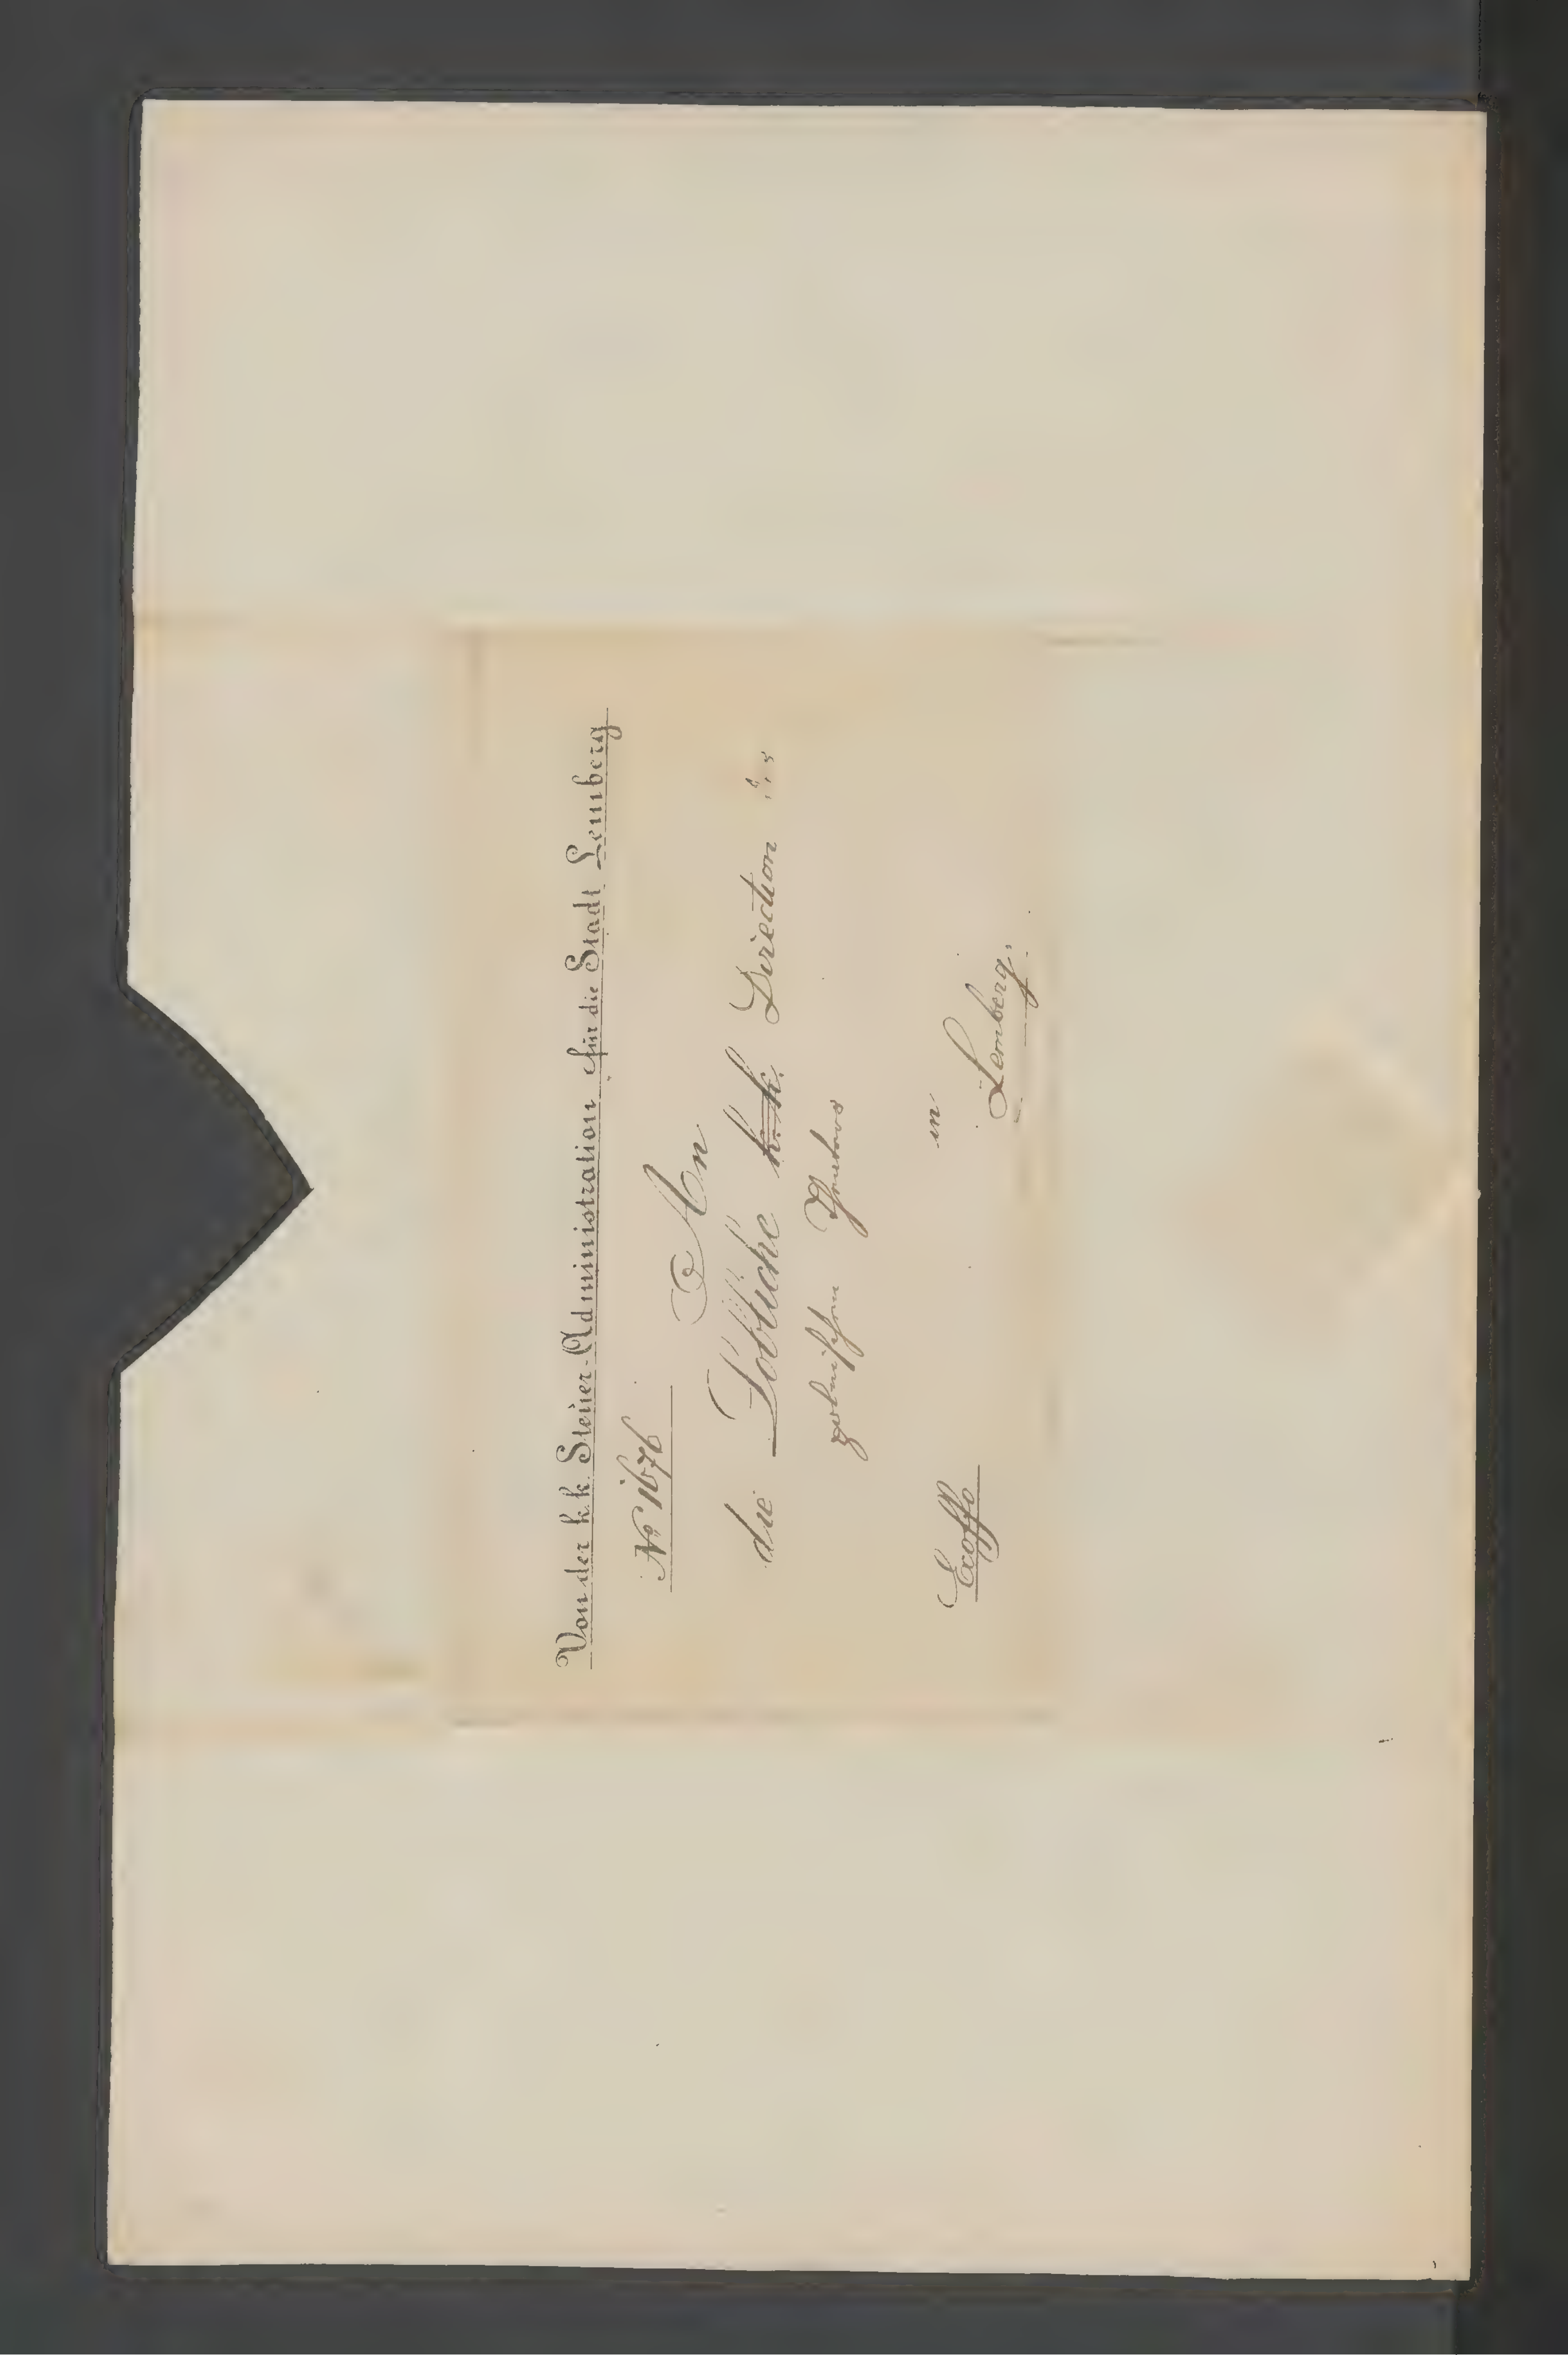 Von der k.k. Steuer-Administration für die Stadt Lemberg
No 1676
An
die Löbliche k.k. Direction des
polnischen Theaters
in
Lemberg.
Exoffo